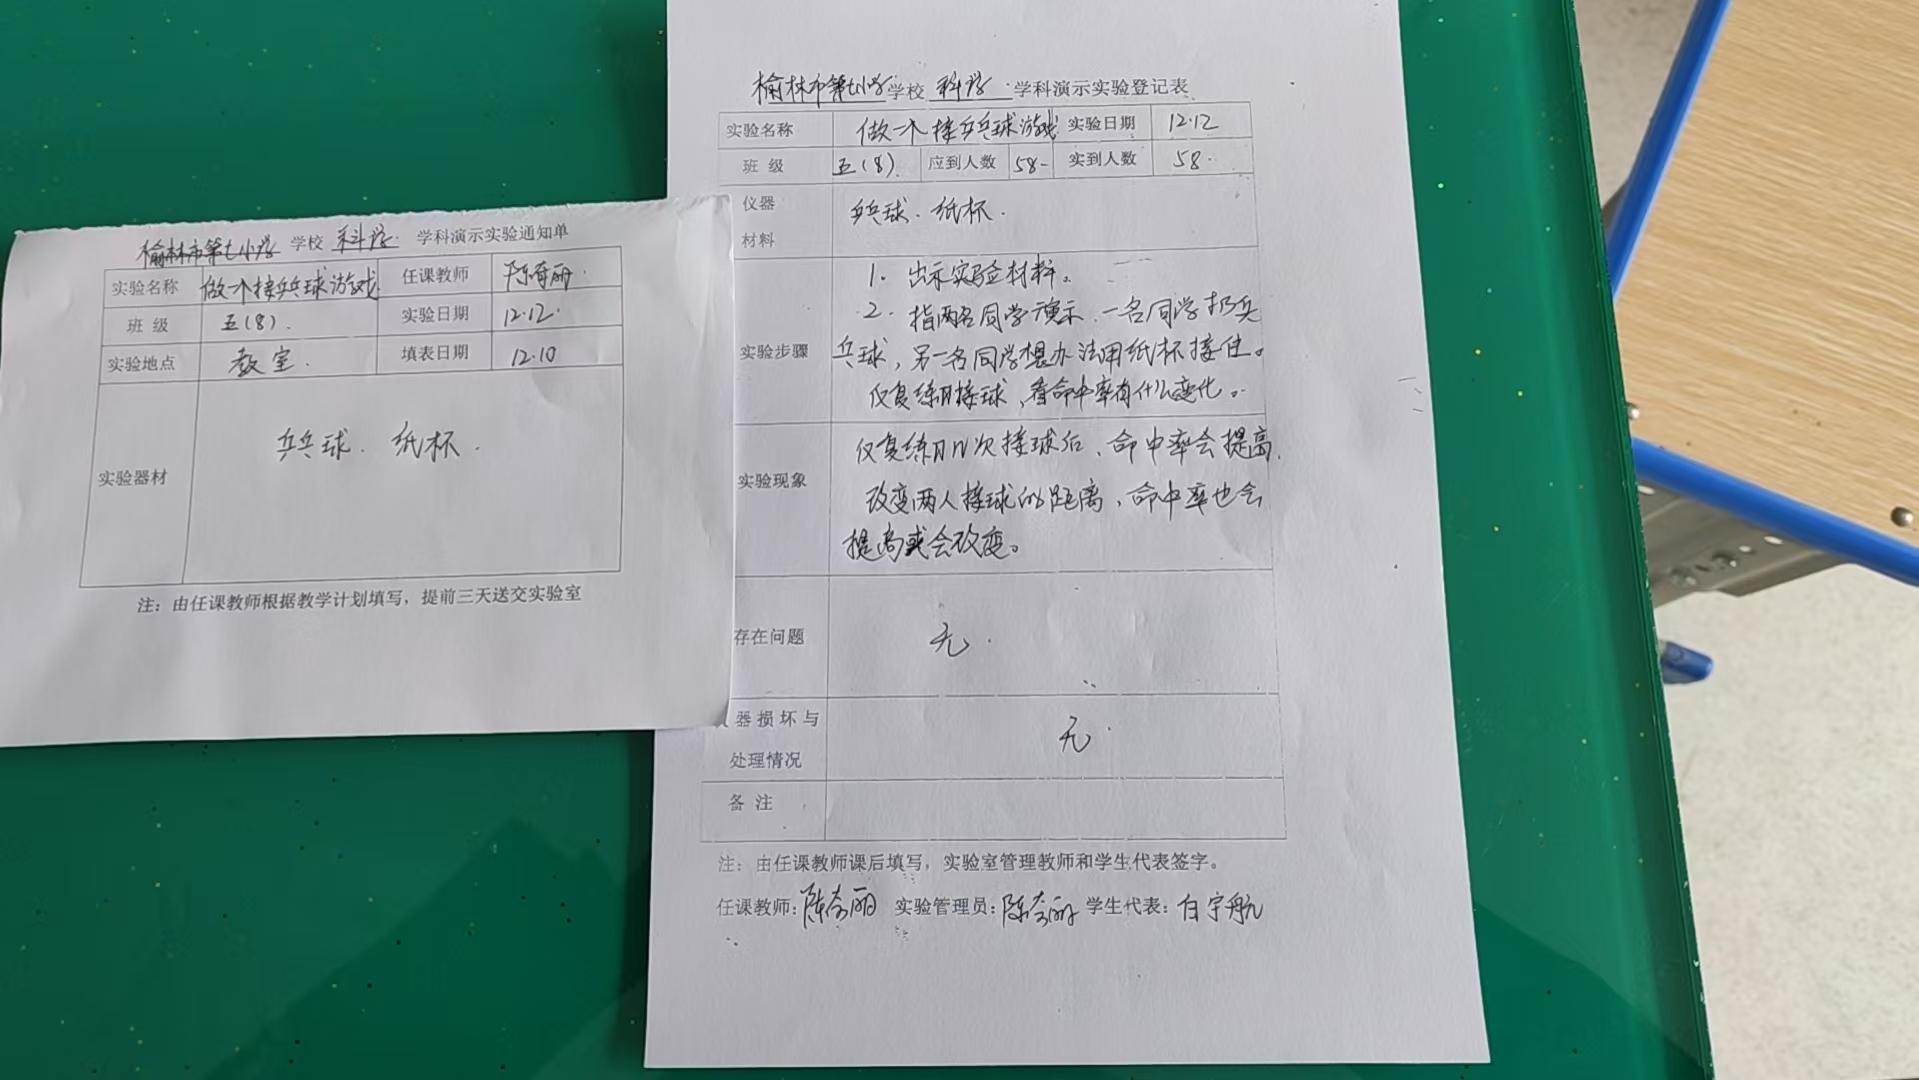 榆林市第七小学 学校 科学 学科演示实验通知单
实验名称 做一个接乒乓球游戏 任课教师 陈奇丽
班 级 五(8). 实验日期 12.12.
实验地点 教室. 填表日期 12.10
实验器材 乒乓球. 纸杯.
注：由任课教师根据教学计划填写，提前三天送交实验室
榆林市第七小学 学校 科学 学科演示实验登记表
实验名称 做一个接乒乓球游戏 实验日期 12.12
班 级 五(8). 应到人数 58- 实到人数 58.
仪器
材料
乒乓球. 纸杯.
实验步骤
1. 出示实验材料。
2. 指两名同学演示.一名同学扔乒
乓球，另一名同学想办法用纸杯接住。
反复练习接球，看命中率有什么变化。
实验现象
反复练习几次接球后、命中率会提高.
改变两人接球的距离，命中率也会
提高或会改变。
存在问题 无.
器损坏与
处理情况
无.
备 注
注：由任课教师课后填写，实验室管理教师和学生代表签字。
任课教师：陈奇丽 实验管理员：陈奇丽 学生代表：白宇航